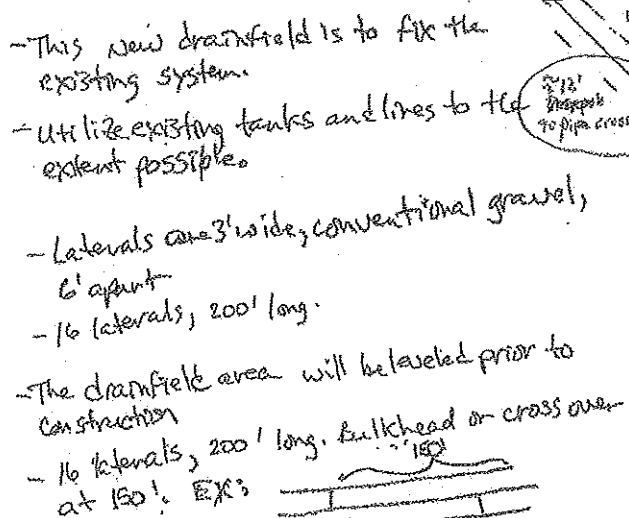 - This new drainfield is to fix the
existing system.
- Utilize existing tanks and lines to the
extent possible.
- Laterals are 3' wide, conventional gravel,
6' apart
- 16 laterals, 200' long.
- The drainfield area will be leveled prior to
construction
- 16 laterals, 200' long. Bulkhead or cross over
at 150'. EX:
150'